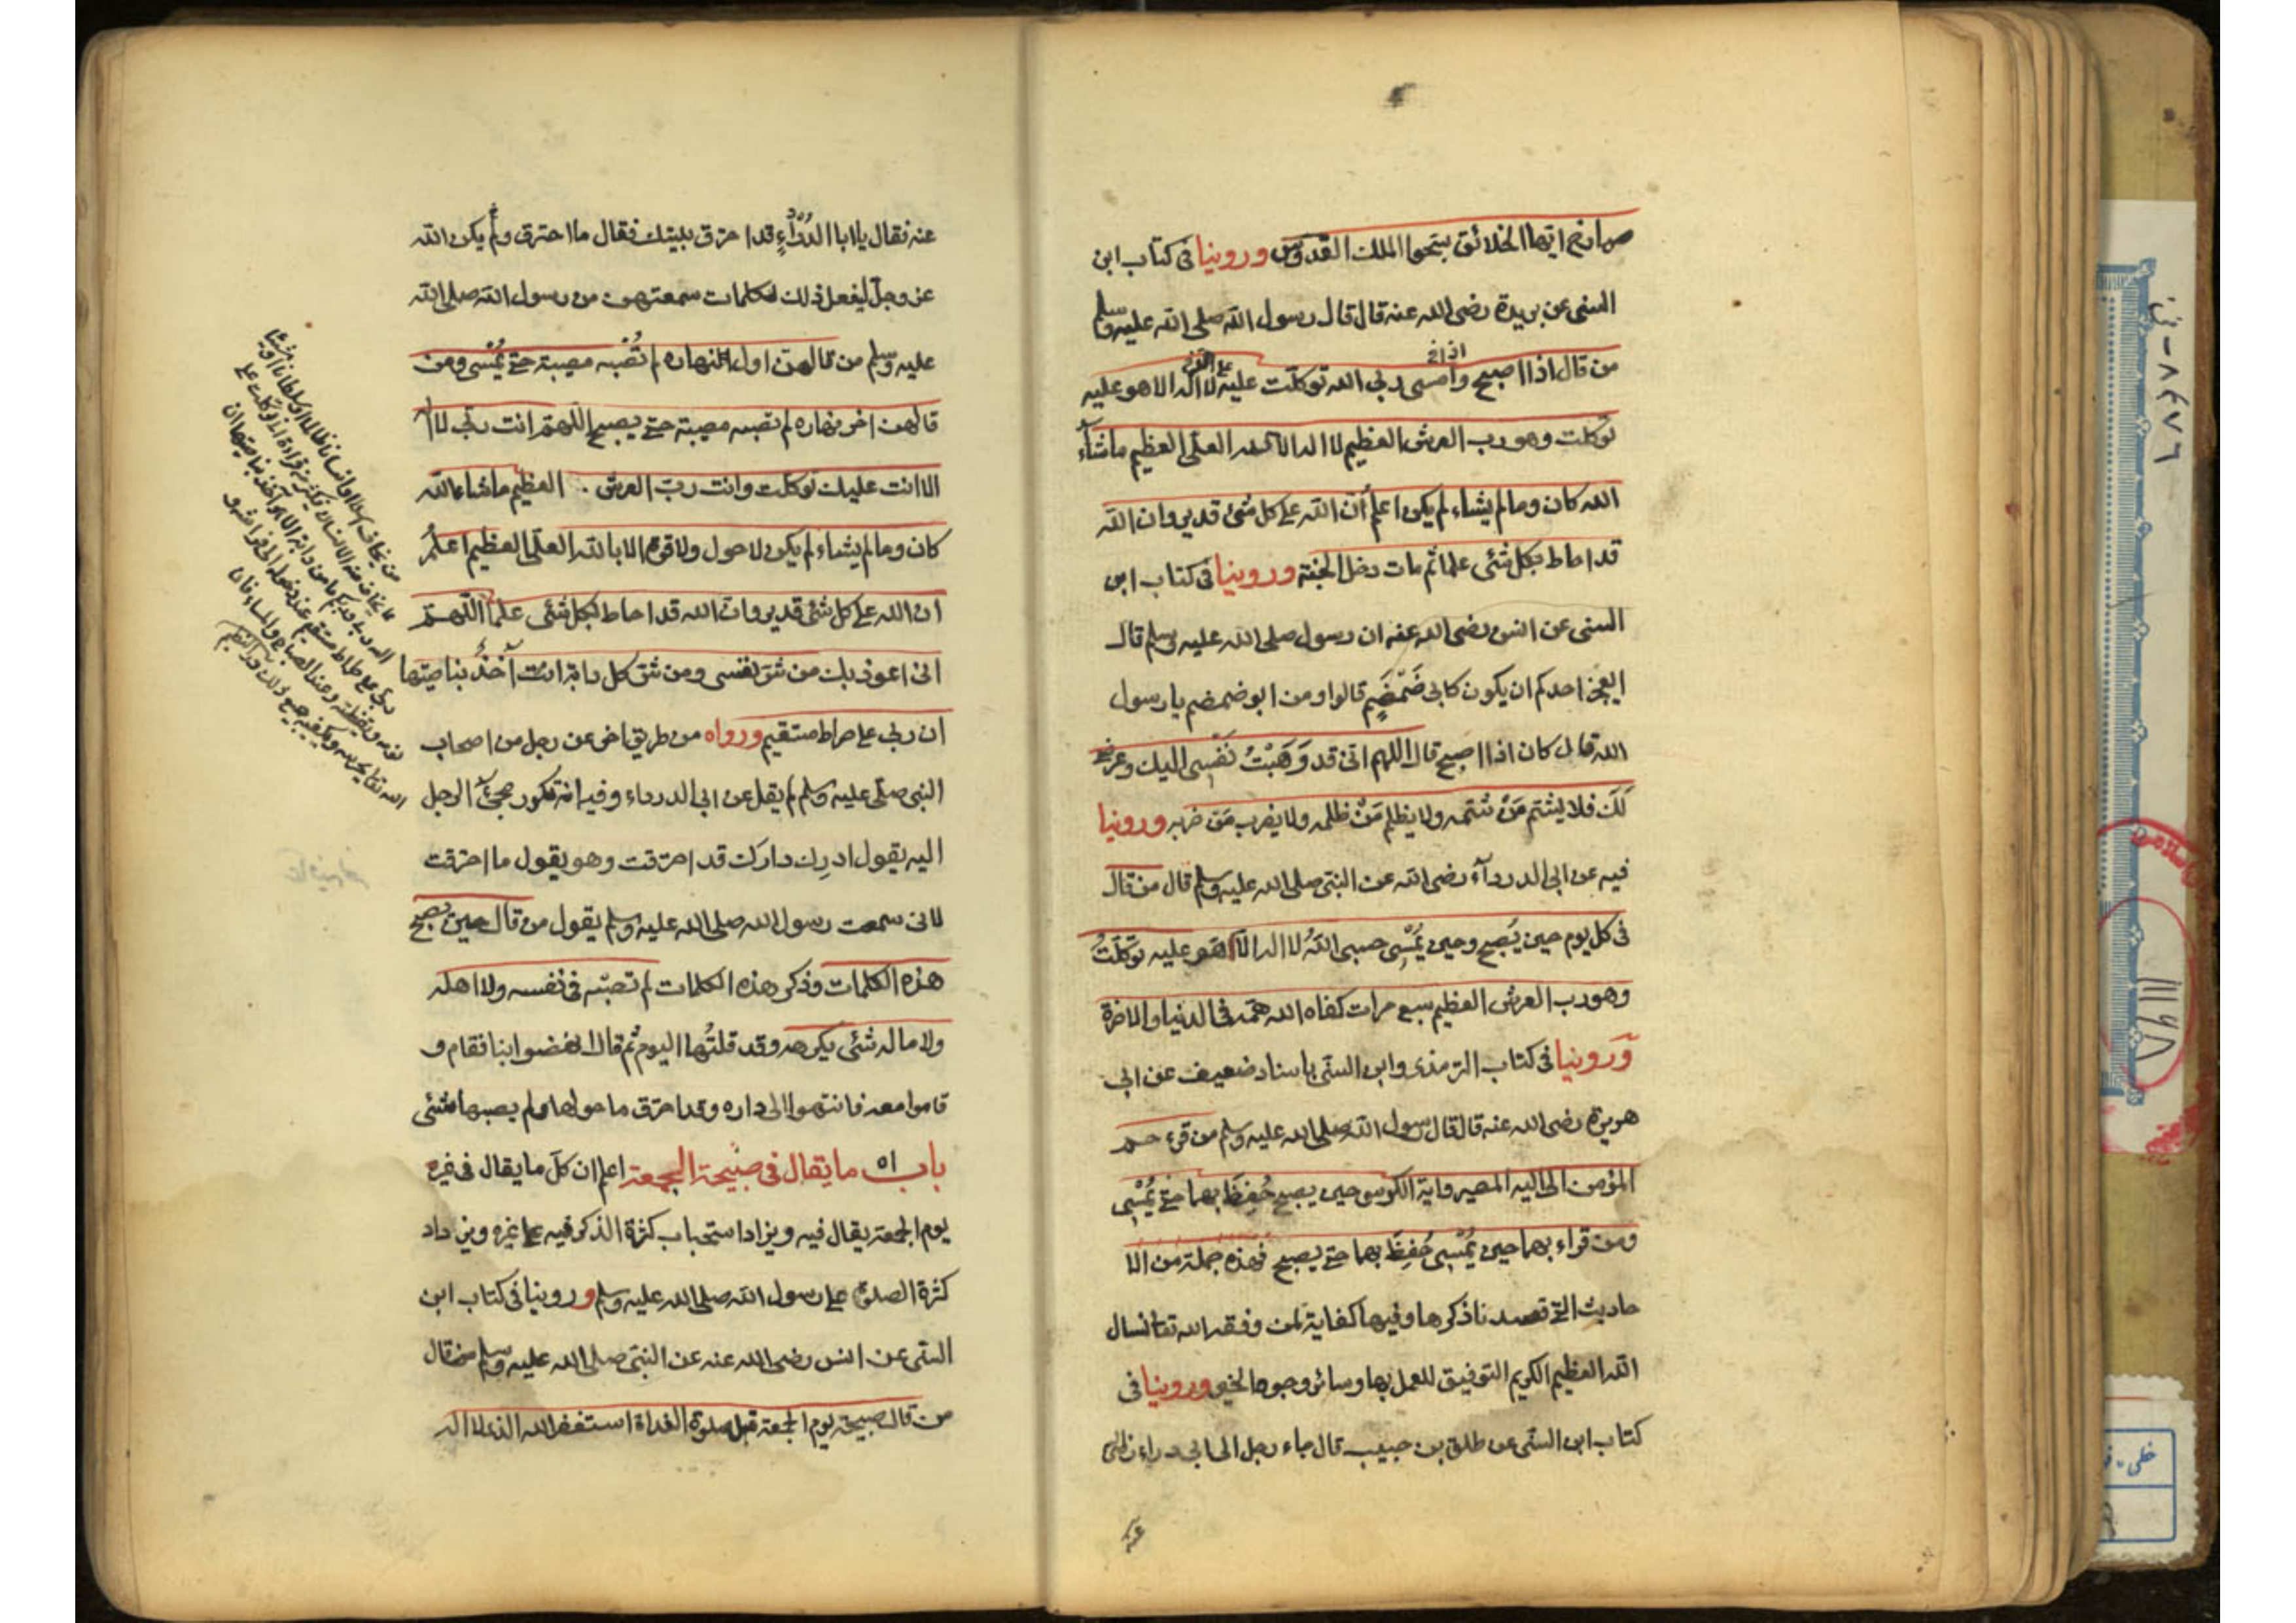 صارخ ايها الخلائق سبحوا الملك القدوس وروينا فى كتاب ابن
السنى عن بريدة رضى الله عنه قال قال رسول الله صلى الله عليه وسلم
من قال اذا اصبح وامسى ربى الله توكلت عليه لا اله الا هو عليه
توكلت وهو رب العرش العظيم لا اله الا الله العلى العظيم ماشآء
الله كان وما لم يشاء لم يكن اعلم أن الله على كل شئ قدير وان الله
قد احاط بكل شئى علما ثم مات دخل الجنة وروينا فى كتاب ابن
السنى عن انس رضى الله عنه ان رسول صلى الله عليه وسلم قال
ايعجز احدكم ان يكون كابى ضَمْضَمٍ قالوا ومن ابو ضمضم يا رسول
الله قال كان اذا اصبح قال اللهم انى قد وَهَبْتُ نَفْسِى اليك وعرضى
لَكَ فلا يشتم مَنْ شتمه ولا يظلم مَنْ ظلمه ولا يضرب مَن ضربه وروينا
فيه عن ابى الدردآء رضى الله عن النبى صلى الله عليه وسلم قال من قال
فى كل يوم حين يُصبح وحين يُمْسِى حسبى اللهُ لا اله الا هو عليه توكلتُ
وهو رب العرش العظيم سبع مرات كفاه الله همه فى الدنيا والاخرة
وروينا فى كتاب الترمذى وابن السنى باسناد ضعيف عن ابى
هريرة رضى الله عنه قال قال رسول الله صلى الله عليه وسلم من قرء حم
المؤمن الى اليه المصير واية الكرسى حين يصبح حُفِظَ بهما حتى يُمْسِى
ومن قراء بهما حين يُمْسِى حُفِظَ بهما حتى يصبح فهذه جملة من الا
حاديث التى قصدنا ذكرها وفيها كفاية لمن وفقه الله تعا نسال
الله العظيم الكريم التوفيق للعمل بها وسائر وجوه الخير وروينا فى
كتاب ابن السنى عن طلق بن حبيب قال جاء رجل الى ابى دراء رضى
عنه
عنه فقال يا ابا الدرداءِ قد احرق بيتك فقال ما احترق ولم يكن الله
عز وجل ليفعل ذلك لكلمات سمعتهن من رسول الله صلى الله
عليه وسلم من قالهن اول النهاره لم تُصْبه مصيبة حتى يُمْسى ومن
قالهن اخر نهاره لم تصبه مصيبة حتى يصبح اللهم انت ربى لا اله
الا انت عليك توكلت وانت ربّ العرش العظيم ماشاء الله
كان وما لم يشاء لم يكن لا حول ولا قوة الا بالله العلى العظيم اعلمُ
ان الله على كل شئ قدير وان الله قد احاط بكل شئى علما اللهم
انى اعوذ بك من شر نفسى ومن شر كل دابة انت آخذ بناصيتها
ان ربى على صراط مستقيم ورواه من طريق اخر عن رجل من اصحاب
النبى صلى عليه وسلم لم يقل عن ابى الدرداء وفيه انه تكرر مجئ الرجل
اليه يقول ادرِك دارك قد احرقت وهو يقول ما احرقت
لانى سمعت رسول الله صلى الله عليه وسلم يقول من قال حين يصبح
هذه الكلمات وذكر هذه الكلمات لم تصبه فى نفسه ولا اهله
ولا ماله شئى يكرهه وقد قلتُها اليوم ثم قال انهضوا بنا فقام و
قاموا معه فانتهوا الى داره وقد احرق ما حولها ولم يصبها شئى
باب ٥١ ما يقال فى صبيحة الجمعة اعلم ان كلّ ما يقال فى غيره
يوم الجمعة يقال فيه ويزاد استحباب كثرة الذكر فيه على غيره ويزداد
كثرة الصلوة على رسول الله صلى الله عليه وسلم وروينا فى كتاب ابن
السنى عن انس رضى الله عنه عن النبى صلى الله عليه وسلم قال
من قال صبيحة يوم الجمعة قبل صلوة الغداة استغفر الله الذى لا اله